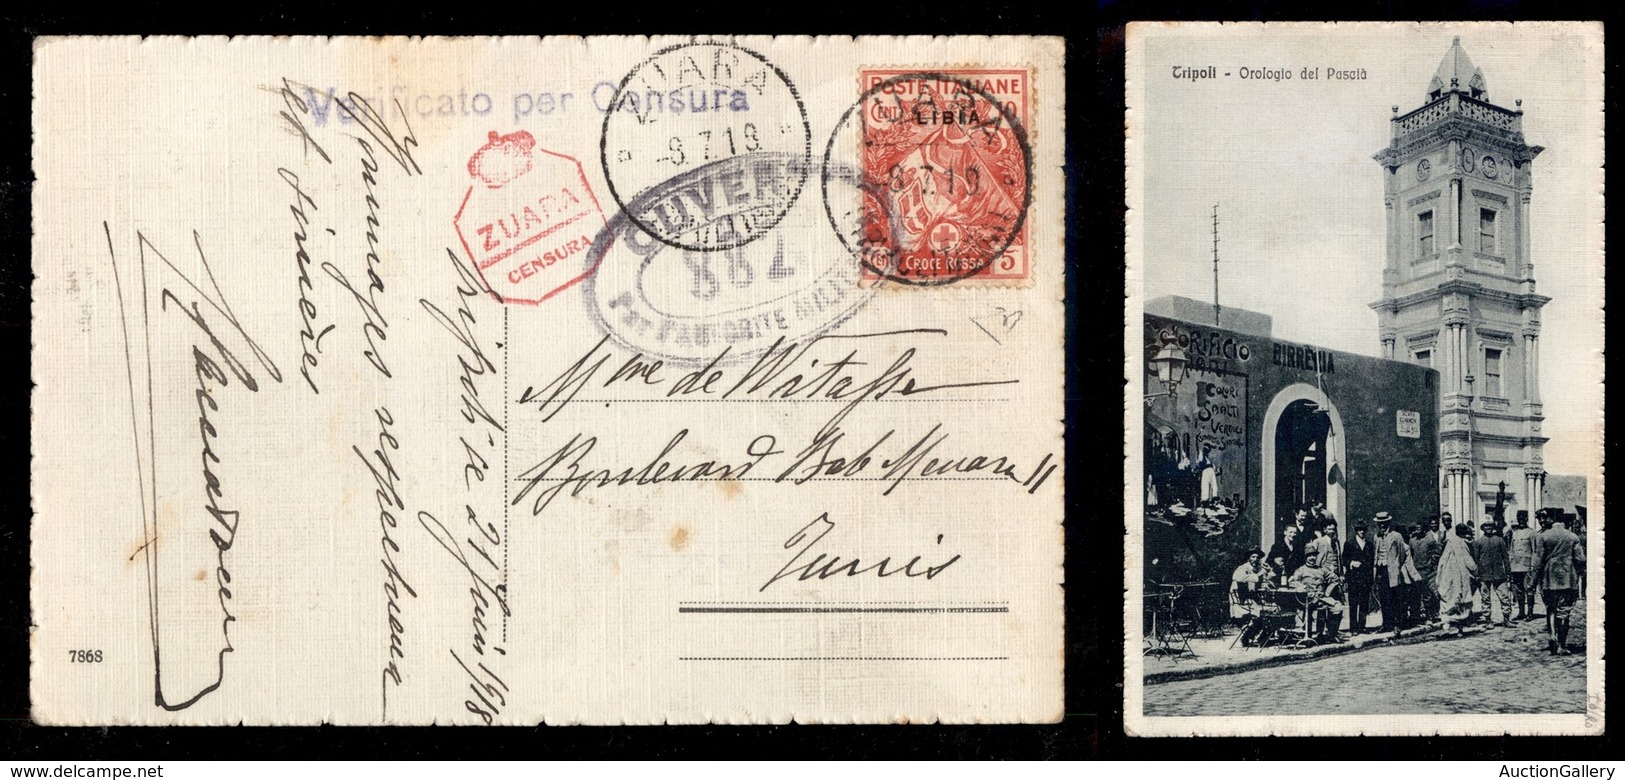 Verificato per Censura
ZUARA
CENSURA
ZUARA
-8.7.18
OUVERT
887
Par l'AUTORITÉ MILITAIRE
ZUARA
-8.7.18
POSTE ITALIANE
CENT 10
LIBIA
CROCE ROSSA
5
Mme de Witasse
Boulevard Bab Menara 11
Tunis
le 21 Juin 1918
Hommages respectueux
et sincères
7868
Tripoli - Orologio del Pascià
COLORIFICIO
BIRRERIA
COLORI
SMALTI
VERNICI
AuctionGallery